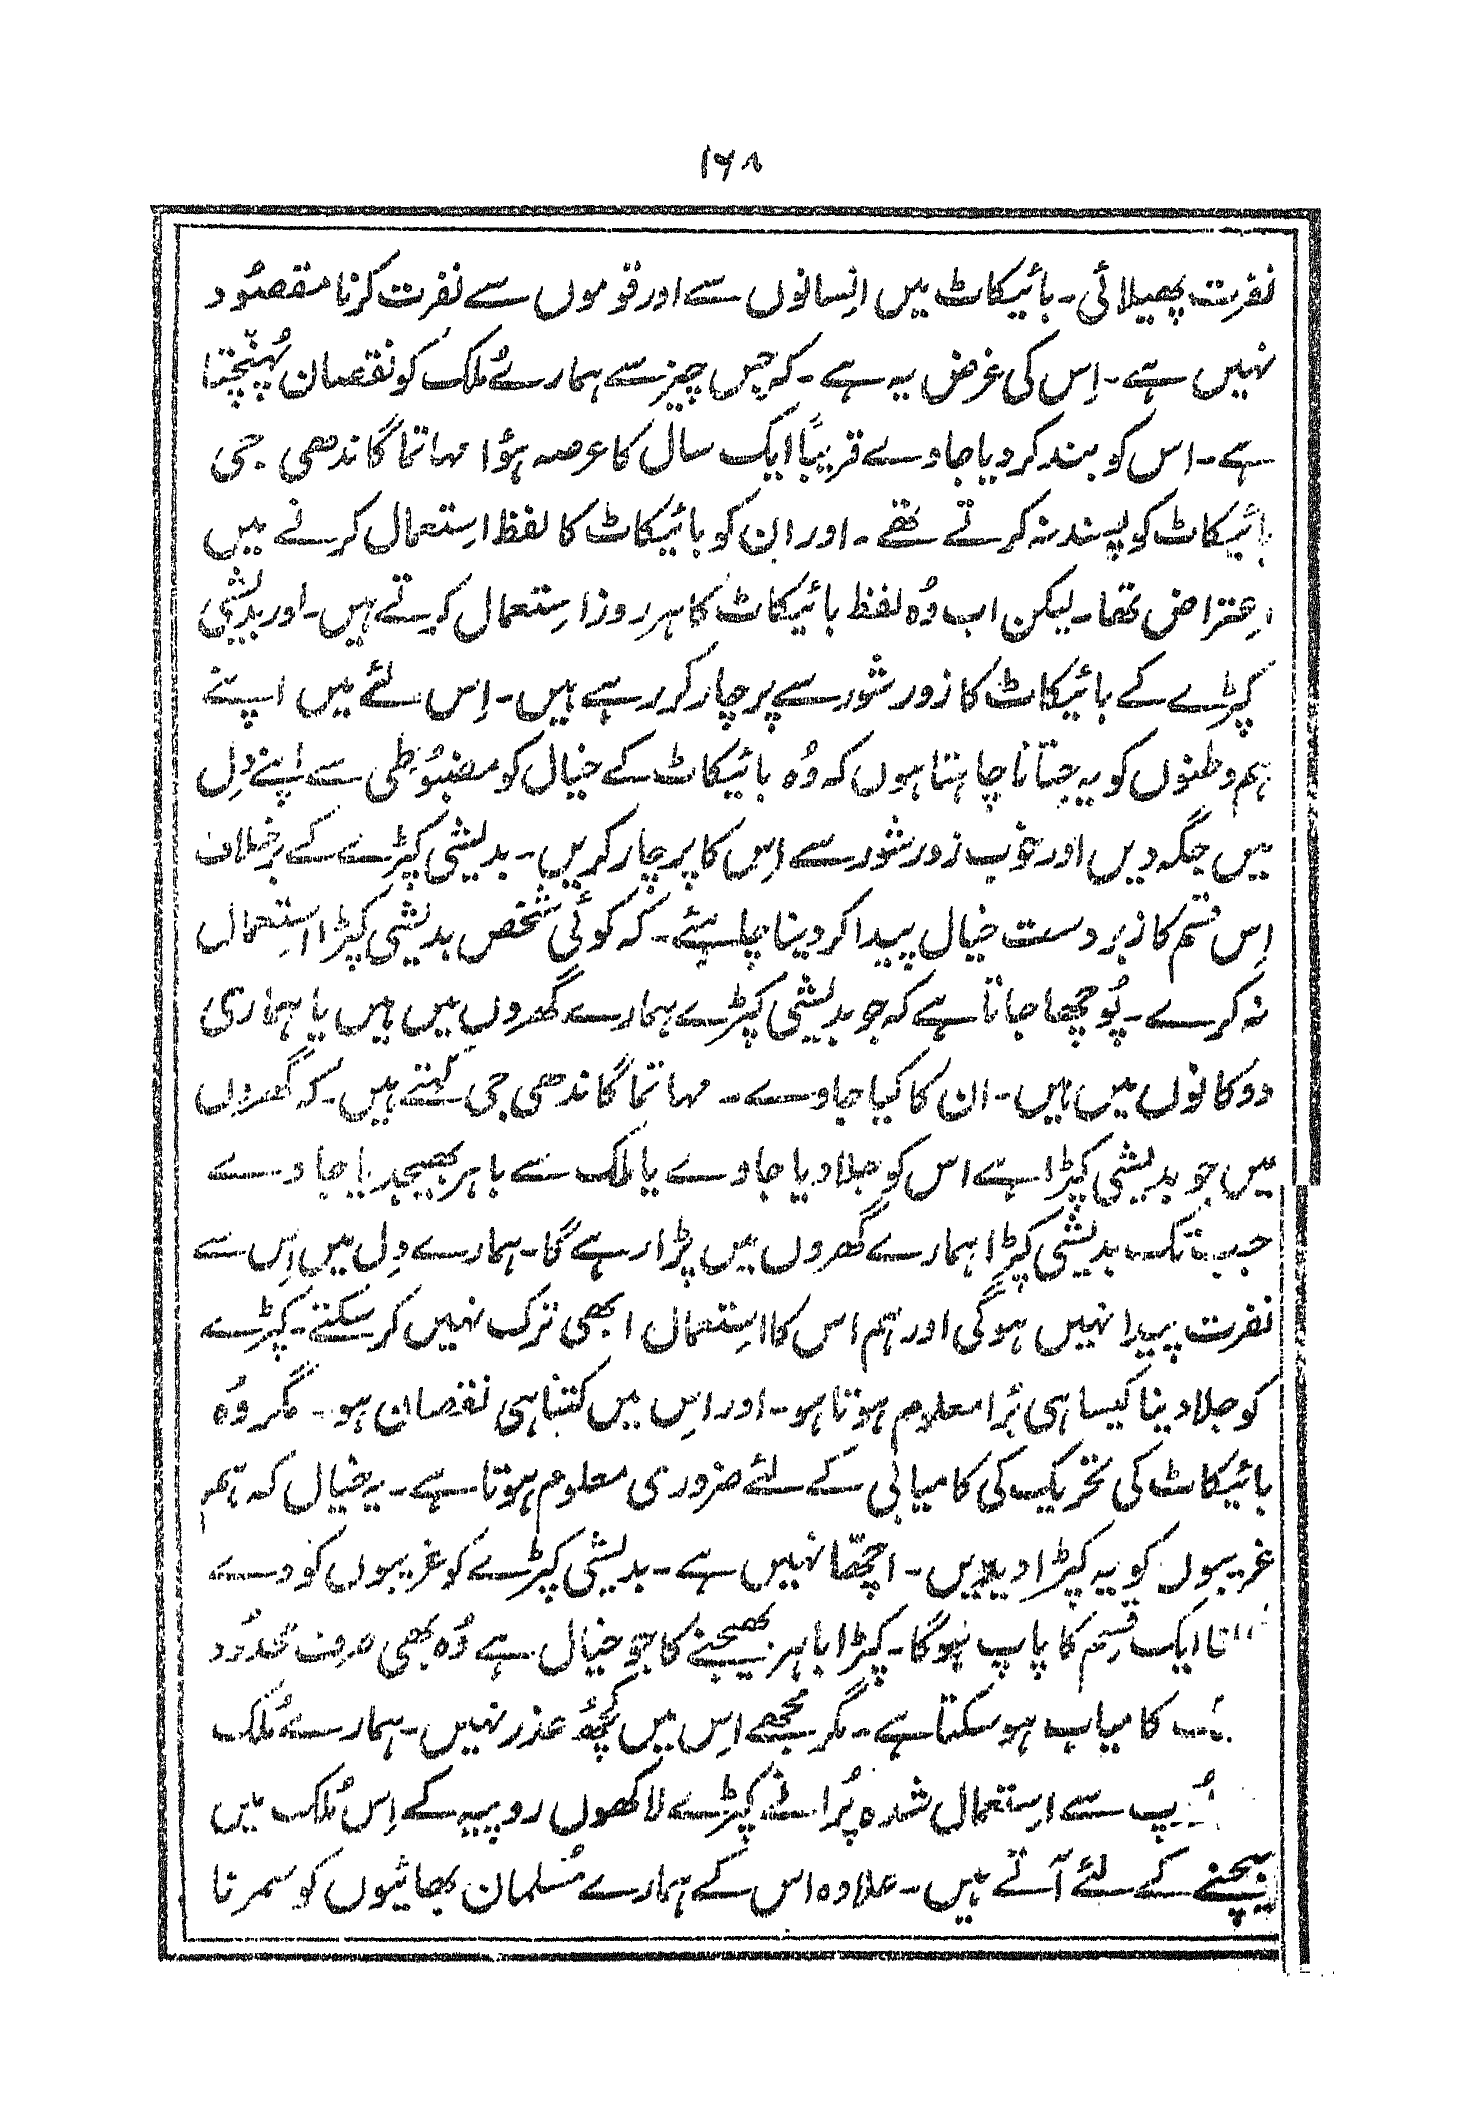 ۱۶۸
نفرت پھیلائی۔ بائیکاٹ میں اِنسانوں سے اور قوموں سے نفرت کرنا مقصُود
نہیں ہے۔ اِس کی غرض یہ ہے۔ کہ جس چیز سے ہمارے مُلک کو نقصان پُہنچتا
ہے۔ اس کو بند کر دیا جاوے قریباً ایک سال کا عرصہ ہؤا مہاتما گاندھی جی
بائیکاٹ کو پسند نہ کرتے تھے۔ اور ان کو بائیکاٹ کا لفظ اِستعمال کرنے میں
اعتراض تھا۔ لیکن اب وُہ لفظ بائیکاٹ کا ہر روز اِستعمال کرتے ہیں۔ اور بدیشی
کپڑے کے بائیکاٹ کا زور شور سے پرچار کر رہے ہیں۔ اِس لئے میں اپنے
ہم وطنوں کو یہ جتانا چاہتا ہوں کہ وُہ بائیکاٹ کے خیال کو مضبُوطی سے اپنے دِل
میں جگہ دیں اور خوب زور شور سے اِس کا پرچار کریں۔ بدیشی کپڑے کے برخلاف
اِس قسم کا زبردست خیال پیدا کر دینا چاہیئے۔ کہ کوئی شخص بدیشی کپڑا اِستعمال
نہ کرے۔ پُوچھا جاتا ہے کہ جو بدیشی کپڑے ہمارے گھروں میں ہیں یا ہماری
دوکانوں میں ہیں۔ ان کا کیا جاوے۔ مہاتما گاندھی جی کہتے ہیں۔ کہ گھروں
میں جو بدیشی کپڑا ہے اس کو جلا دیا جاوے یا ملک سے باہر بھیجدیا جاوے
جب تک بدیشی کپڑا ہمارے گھروں میں پڑا رہے گا۔ ہمارے دِل میں اِس سے
نفرت پیدا نہیں ہوگی اور ہم اس کا اِستعمال ابھی ترک نہیں کر سکتے۔ کپڑے
کو جلا دینا کیسا ہی بُرا معلوم ہوتا ہو۔ اور اِس میں کتنا ہی نقصان ہو۔ مگر وُہ
بائیکاٹ کی تحریک کی کامیابی کے لئے ضروری معلوم ہوتا ہے۔ یہ خیال کہ ہم
غریبوں کو یہ کپڑا دیدیں۔ اچھّا نہیں ہے۔ بدیشی کپڑے کو غریبوں کو دے
نا ایک قِسم کا پاپ ہوگا۔ کپڑا باہر بھیجنے کا جو خیال ہے وُہ بھی صرف محدُود
کامیاب ہو سکتا ہے۔ مگر مجھے اِس میں کچھُ عذر نہیں۔ ہمارے مُلک
سے اِستعمال شدہ پُرانے کپڑے لاکھوں روپیہ کے اِس مُلک میں
بیچنے کے لئے آتے ہیں۔ علاوہ اس کے ہمارے مُسلمان بھائیوں کو سمرنا